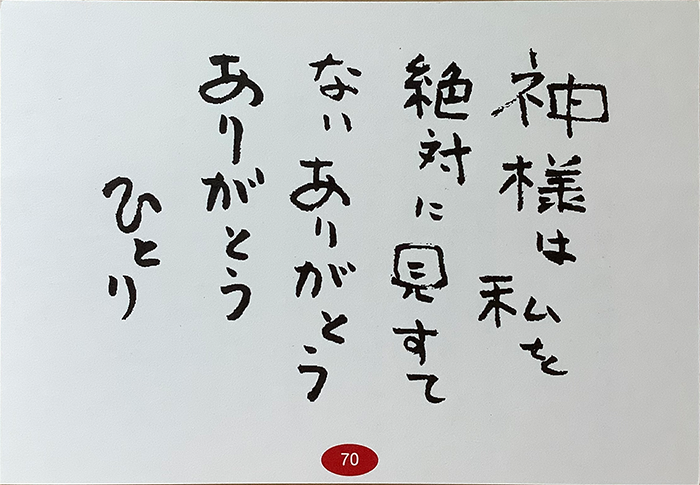 神様は私を
絶対に見すて
ないありがとう
ありがとう
ひとり
70